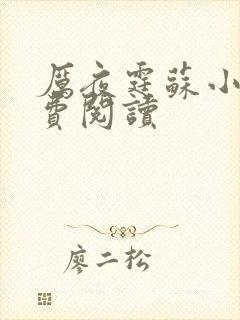 厲夜霆蘇小
費閱讀
廖二松